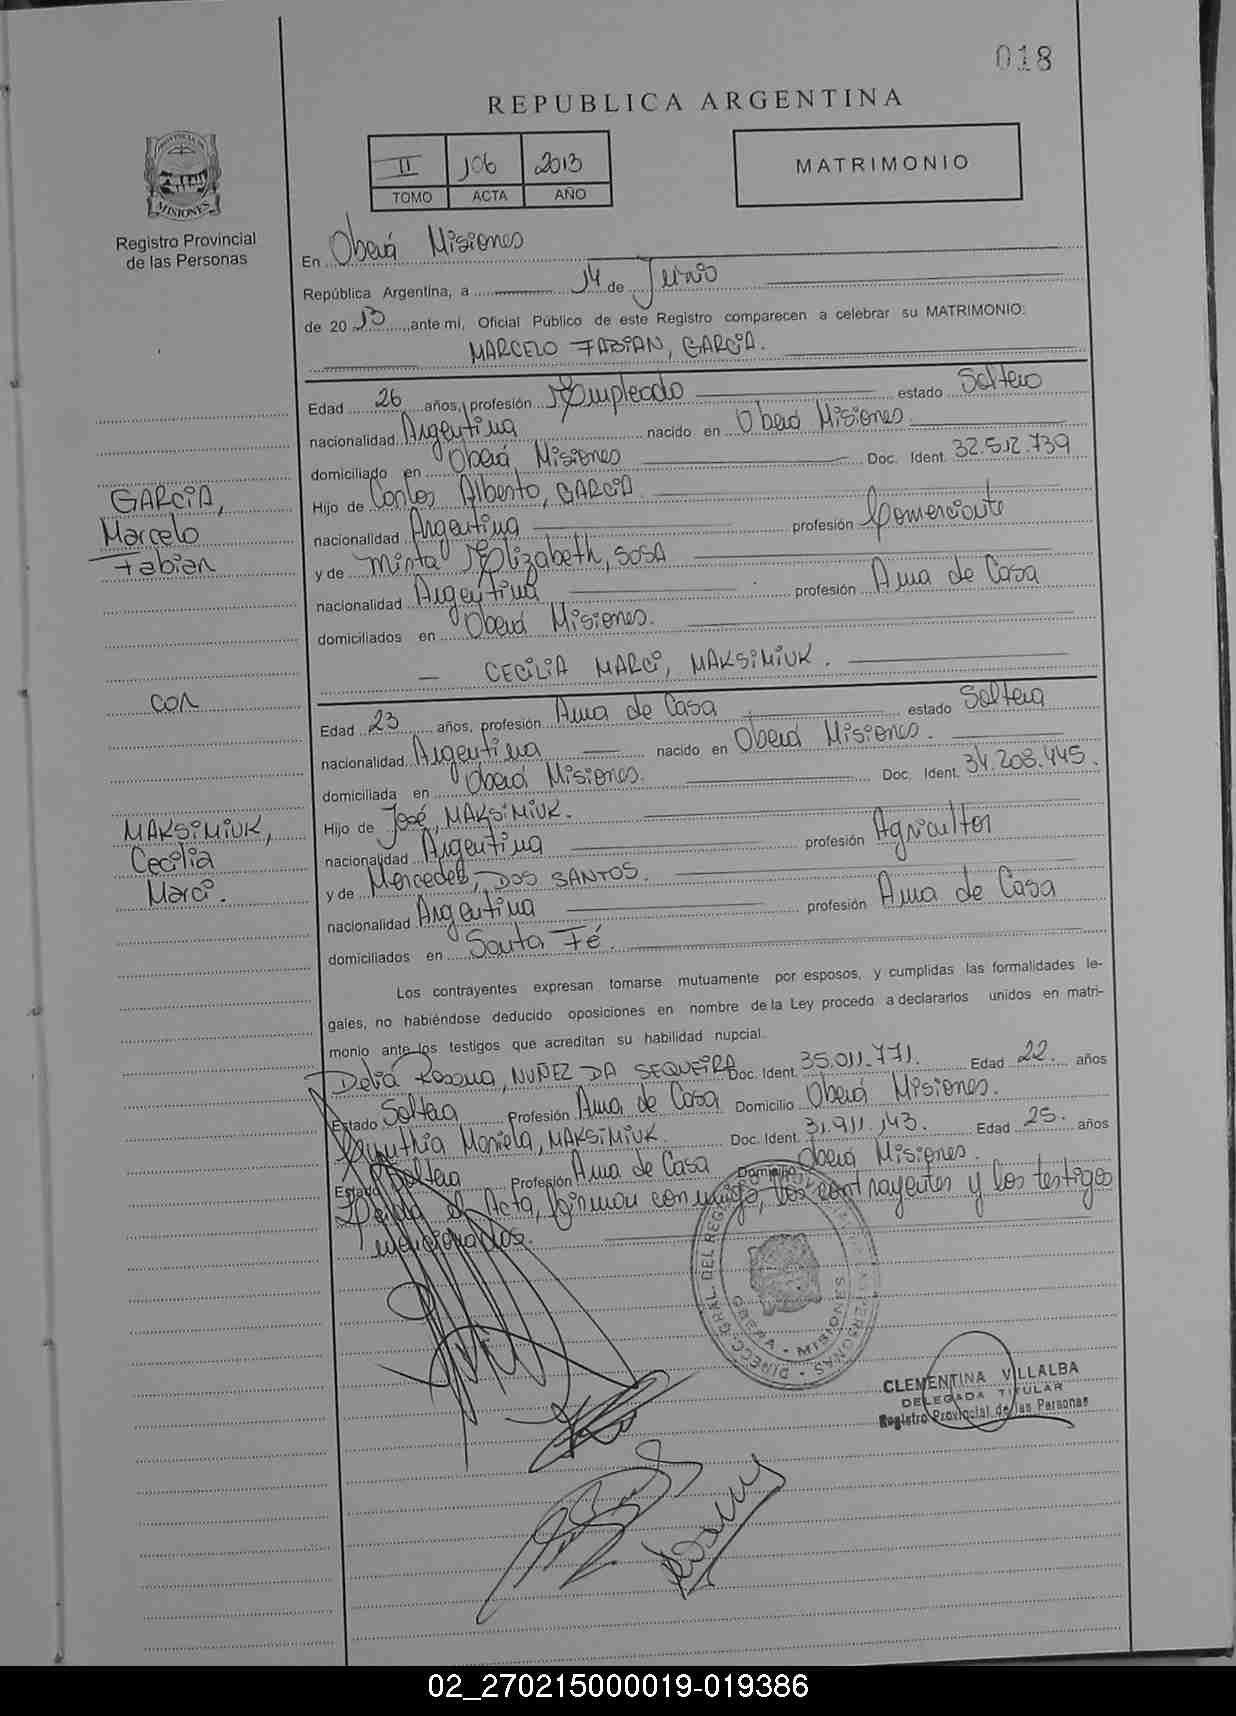 018
REPUBLICA ARGENTINA
II 106 2013
TOMO ACTA AÑO
MATRIMONIO
PROVINCIA DE
MISIONES
Registro Provincial
de las Personas
En Oberá Misiones
República Argentina, a 14 de Junio
de 2013, ante mi, Oficial Público de este Registro comparecen a celebrar su MATRIMONIO:
MARCELO FABIAN, GARCIA.
Edad 26 años, profesión Empleado estado Soltero
nacionalidad Argentina nacido en Oberá Misiones
domiciliado en Oberá Misiones Doc. Ident. 32.512.739
Hijo de Carlos Alberto, GARCIA
nacionalidad Argentina profesión Comerciante
y de Mirta Elizabeth, SOSA
nacionalidad Argentina profesión Ama de Casa
domiciliados en Oberá Misiones.
CECILIA MARCI, MAKSIMIUK.
Edad 23 años, profesión Ama de Casa estado Soltera
nacionalidad Argentina nacido en Oberá Misiones.
domiciliada en Oberá Misiones. Doc. Ident. 34.208.445.
Hijo de José, MAKSIMIUK.
nacionalidad Argentina profesión Agricultor
y de Mercedes, DOS SANTOS.
nacionalidad Argentina profesión Ama de Casa
domiciliados en Santa Fé.
GARCIA,
Marcelo
Fabian
con
MAKSIMIUK,
Cecilia
Marci.
Los contrayentes expresan tomarse mutuamente por esposos, y cumplidas las formalidades le-
gales, no habiéndose deducido oposiciones en nombre de la Ley procedo a declararlos unidos en matri-
monio ante los testigos que acreditan su habilidad nupcial.
Delia Rosana, NUÑEZ DA SEQUEIRA Doc. Ident. 35.011.771. Edad 22. años
Estado Soltera Profesión Ama de Casa Domicilio Oberá Misiones.
Cynthia Mariela, MAKSIMIUK. Doc. Ident. 31.911.143. Edad 25. años
Estado Soltera Profesión Ama de Casa Domicilio Oberá Misiones.
Leída el Acta, firman conmigo, los contrayentes y los testigos
mencionados.
DIRECC. GRAL. DEL REG. PERSONAS
OBERA - MISIONES
CLEMENTINA VILLALBA
DELEGADA TITULAR
Registro Provincial de las Personas
02_270215000019-019386